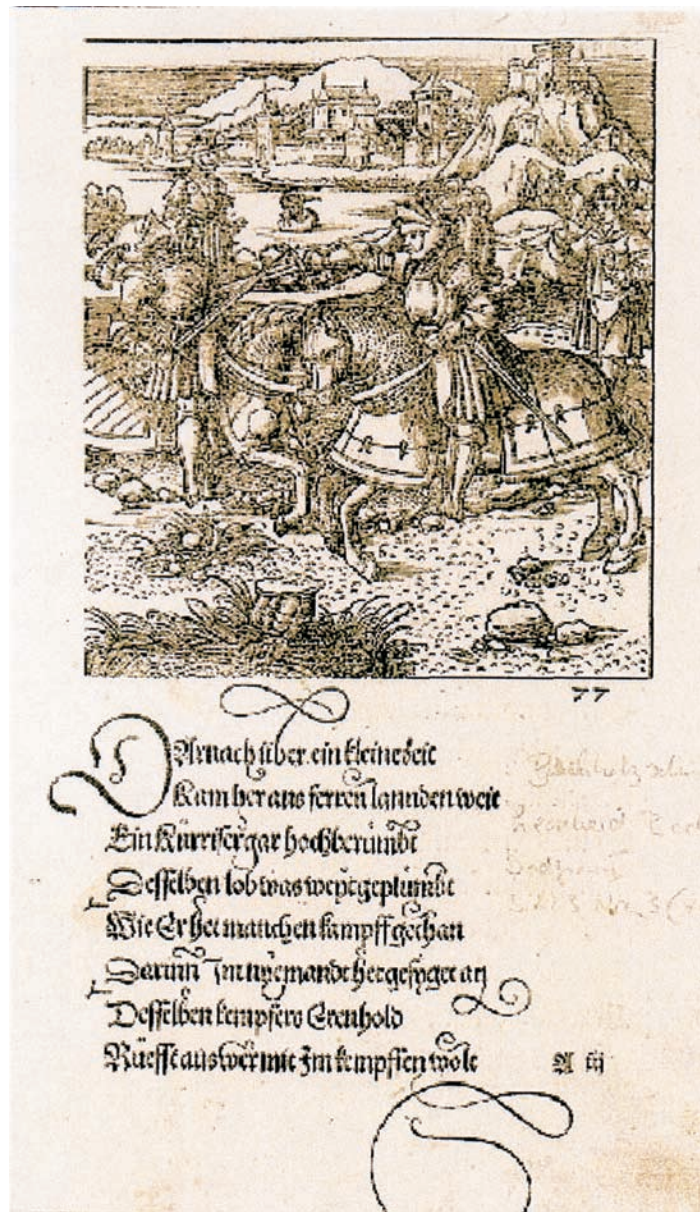 77
DArnach über ein kleine zeit
Kam her aus ferren lannden weit
Ein Kürriser gar hochberümbt
Desselben lob was weyt geplümbt
Wie Er het manchen kampff gethan
Darinn Im nyemandt het gesyget an
Desselben kempfers Erenhold
Rüefft aus wer mit Im kempffen wolt
A iij